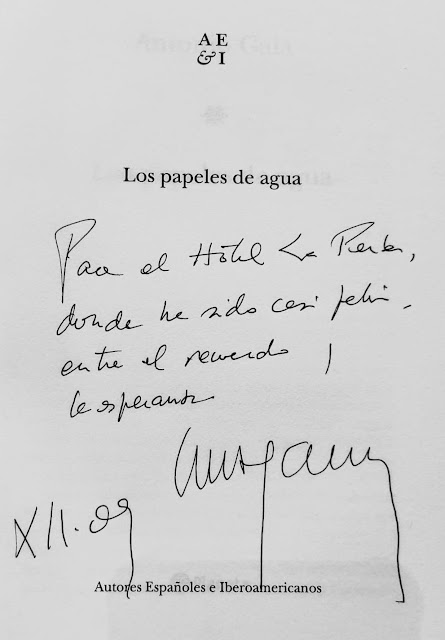 A E
& I
Los papeles de agua
Para el Hotel La Perla,
donde he sido casi feliz,
entre el recuerdo y
la esperanza
XII.09
Autores Españoles e Iberoamericanos